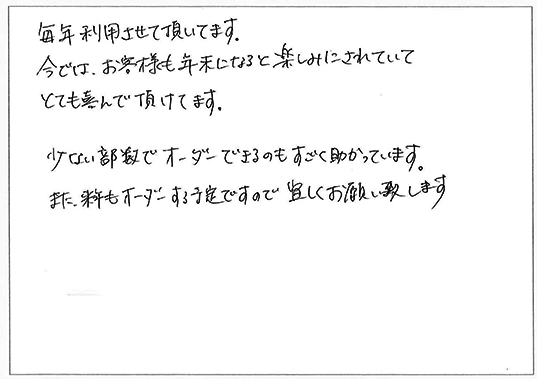 毎年利用させて頂いてます。
今では、お客様も年末になると楽しみにされていて
とても喜んで頂けてます。
少ない部数でオーダーできるのもすごく助かっています。
また、来年もオーダーする予定ですので宜しくお願い致します